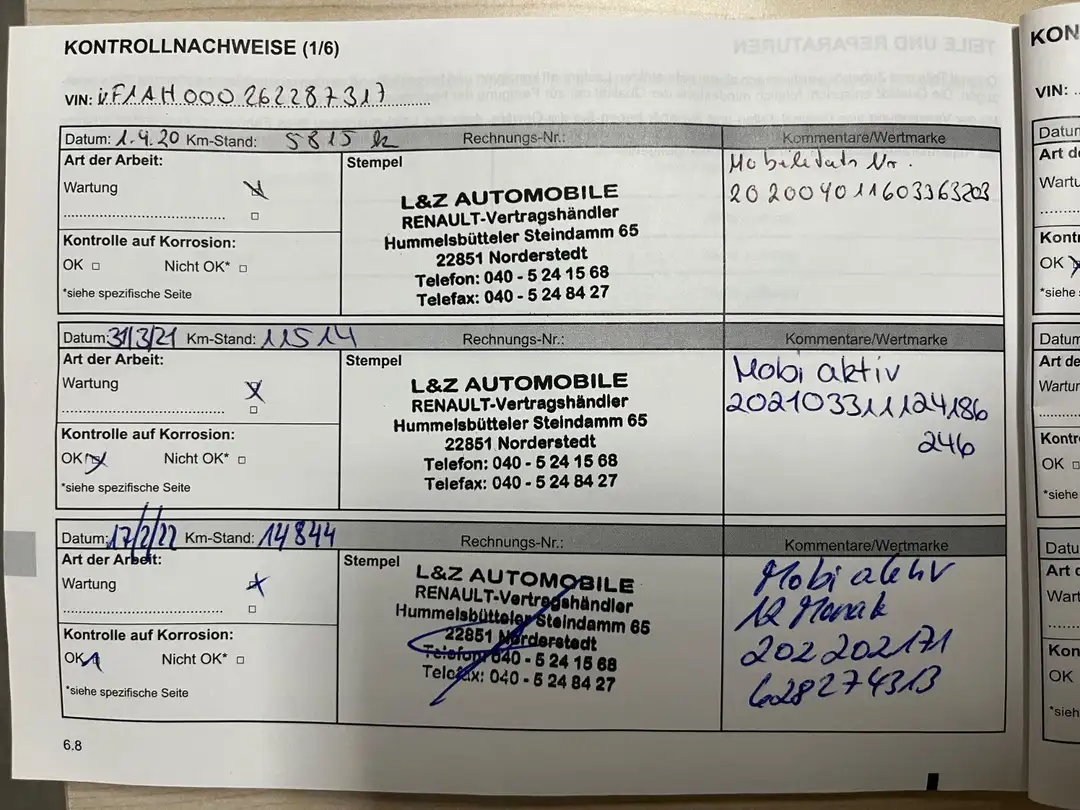 KONTROLLNACHWEISE (1/6)
VIN: VF1AH000262287317
Datum: 1.4.20 Km-Stand: 5815 k Rechnungs-Nr.: Kommentare/Wertmarke
Art der Arbeit:
Wartung
Kontrolle auf Korrosion:
OK Nicht OK*
*siehe spezifische Seite
Stempel
L&Z AUTOMOBILE
RENAULT-Vertragshändler
Hummelsbütteler Steindamm 65
22851 Norderstedt
Telefon: 040 - 5 24 15 68
Telefax: 040 - 5 24 84 27
Mobilitäts Nr.
20200401160336 3203
Datum: 31/3/21 Km-Stand: 11514 Rechnungs-Nr.: Kommentare/Wertmarke
Art der Arbeit:
Wartung
Kontrolle auf Korrosion:
OK Nicht OK*
*siehe spezifische Seite
Stempel
L&Z AUTOMOBILE
RENAULT-Vertragshändler
Hummelsbütteler Steindamm 65
22851 Norderstedt
Telefon: 040 - 5 24 15 68
Telefax: 040 - 5 24 84 27
Mobi aktiv
202103311124186
246
Datum: 17/2/22 Km-Stand: 14844 Rechnungs-Nr.: Kommentare/Wertmarke
Art der Arbeit:
Wartung
Kontrolle auf Korrosion:
OK Nicht OK*
*siehe spezifische Seite
Stempel
L&Z AUTOMOBILE
RENAULT-Vertragshändler
Hummelsbütteler Steindamm 65
22851 Norderstedt
Telefon: 040 - 5 24 15 68
Telefax: 040 - 5 24 84 27
Mobi aktiv
12 Monate
202202171
628274313
6.8
KON
VIN:
Datum
Art de
Wartu
Kontr
OK
*siehe
Datum
Art de
Wartur
Kontr
OK
*siehe
Datu
Art d
Wart
Kon
OK
*sieh